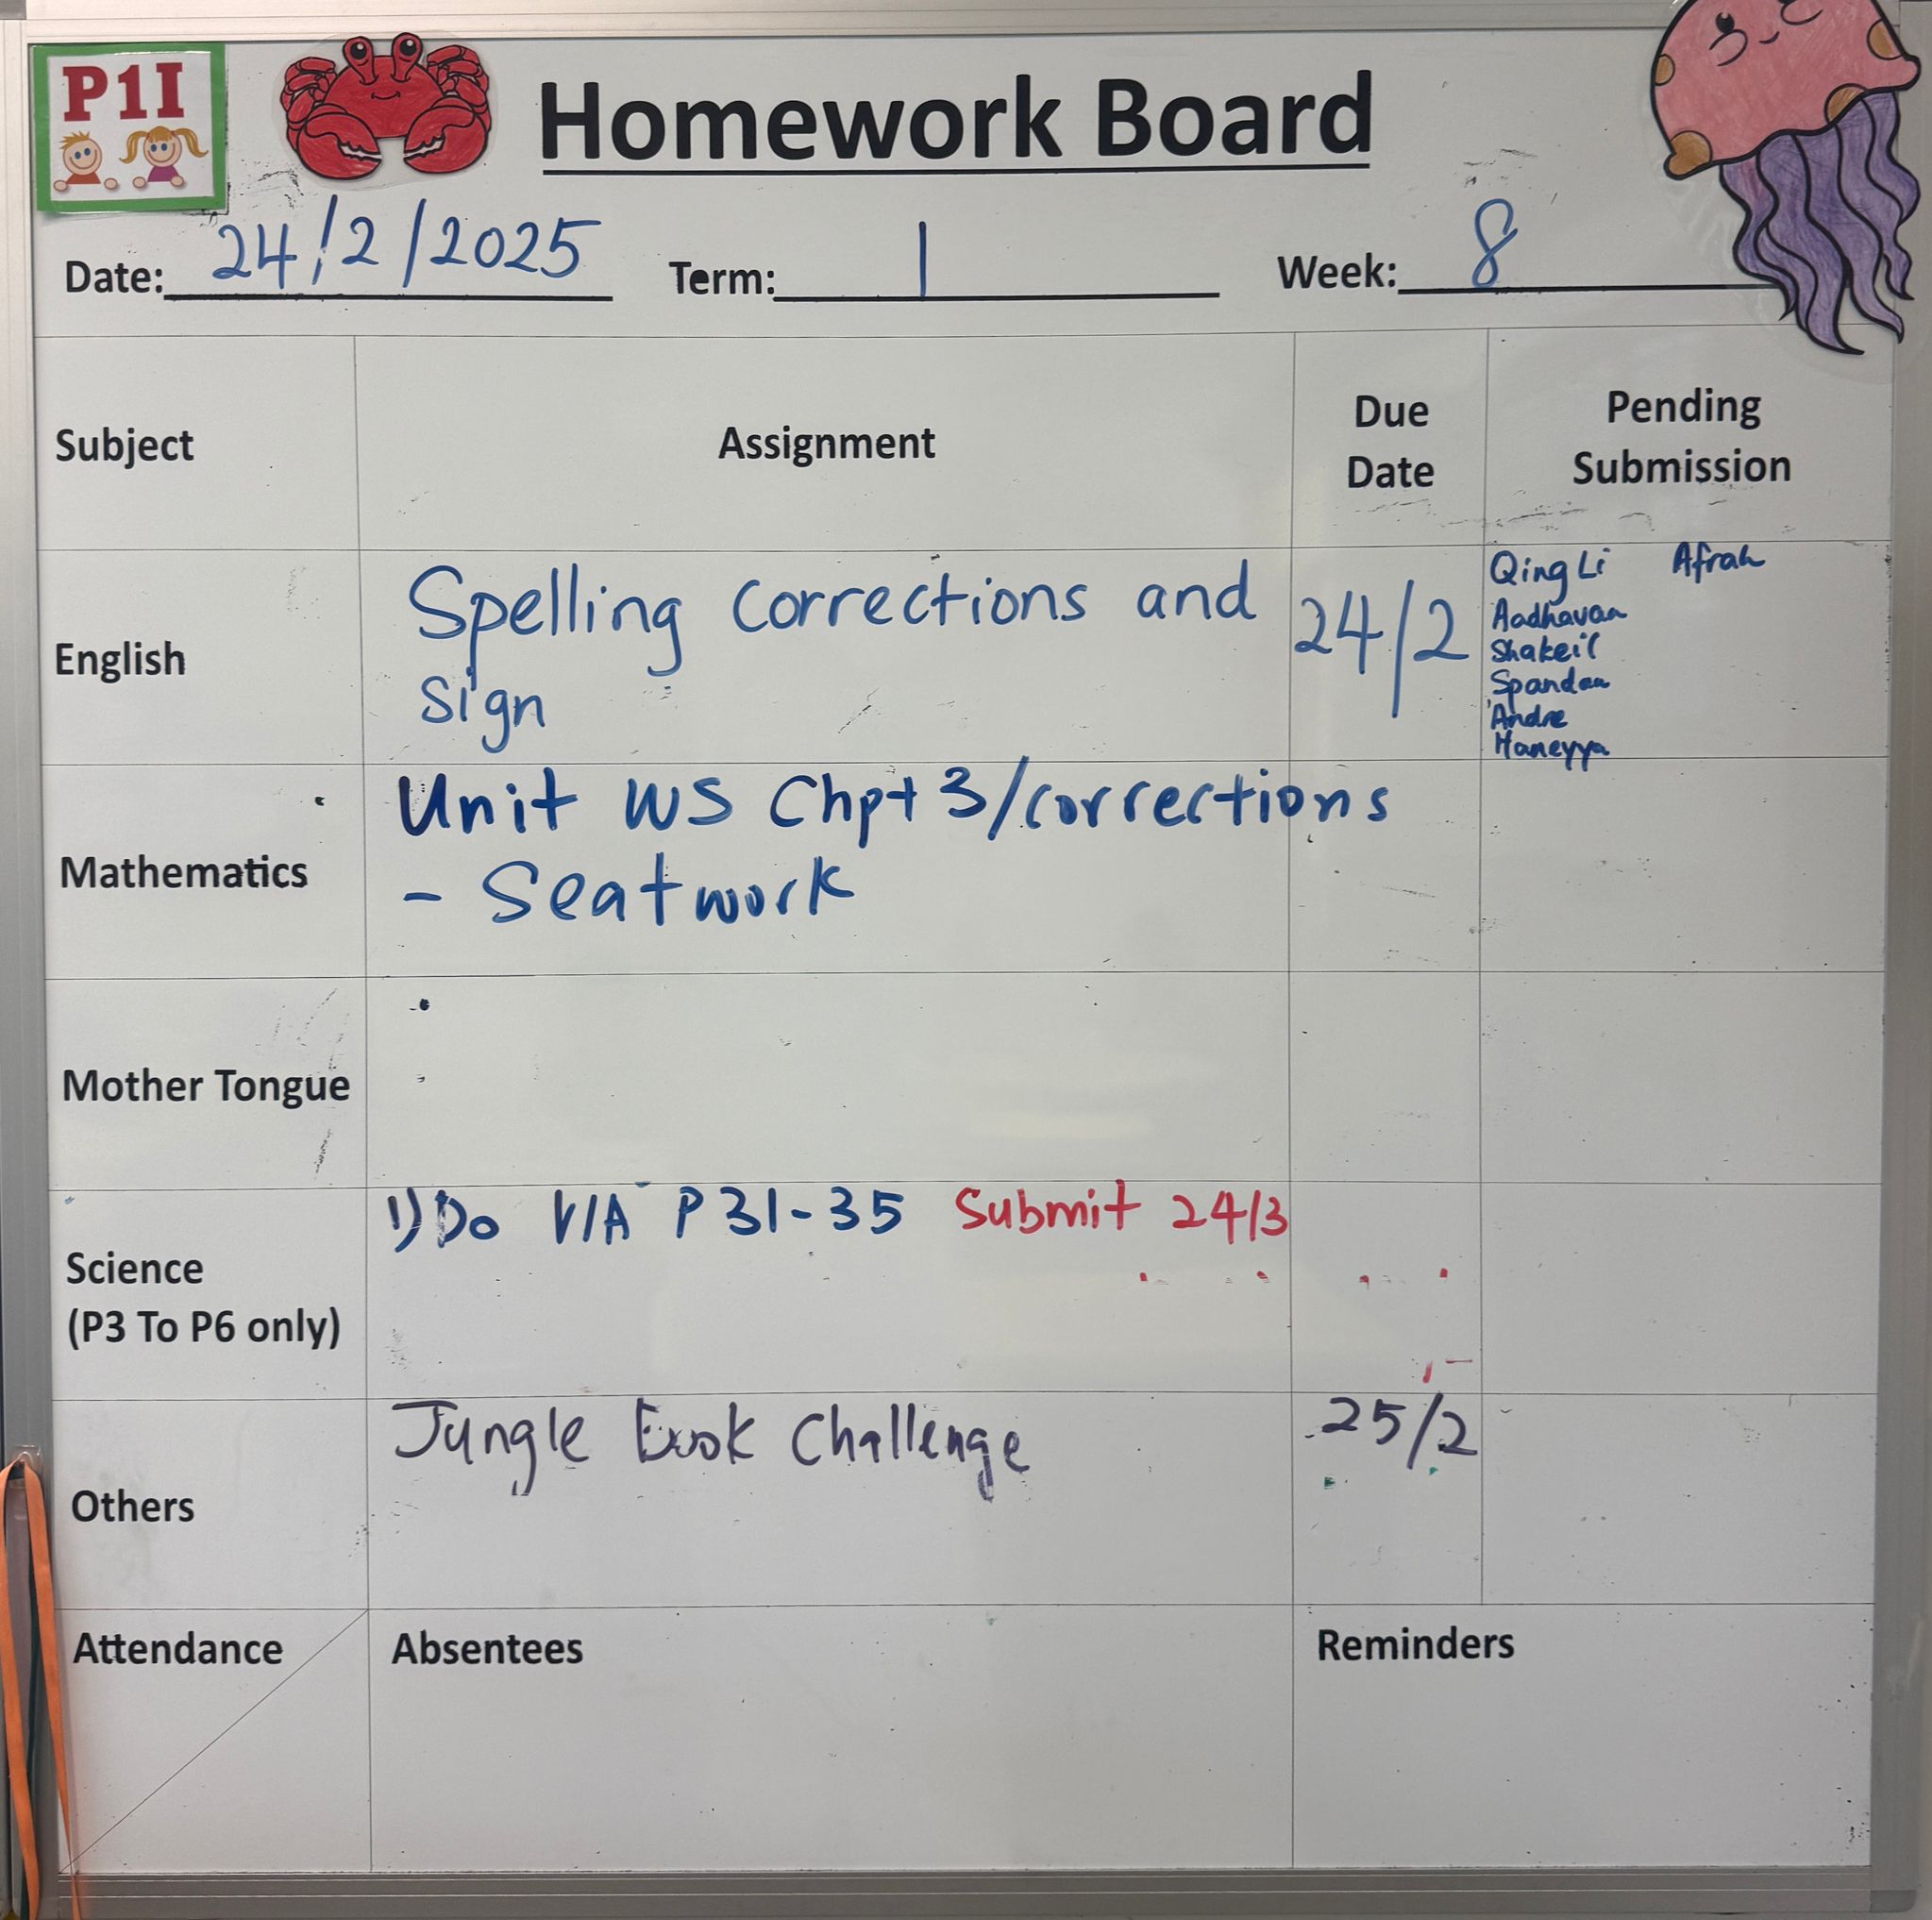 P1I
Homework Board
Date: 24/2/2025 Term: 1 Week: 8
Subject Assignment Due Date Pending Submission
English Spelling corrections and sign 24/2
Qing Li Afrah
Aadhavan
Shakeil
Spandan
Andre
Haneyya
Mathematics Unit WS Chpt 3/corrections
- Seatwork
Mother Tongue
Science (P3 To P6 only) 1) Do V/A P 31-35 Submit 24/3
Others Jungle Book Challenge 25/2
Attendance Absentees Reminders